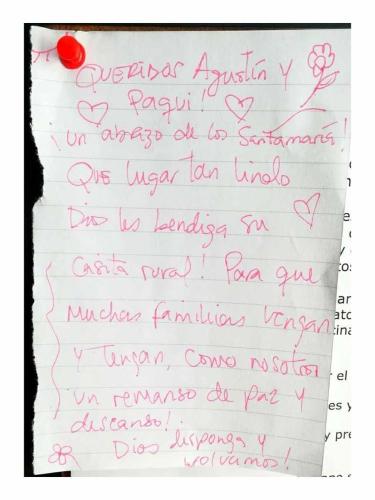 QUERIDOS Agustín y
Paqui!
¡Un abrazo de los Santamaría!
Que lugar tan lindo
Dios les bendiga su
casita rural! Para que
muchas familias vengan
y tengan, como nosotros
un remanso de paz y
descanso!
Dios disponga y
volvamos!